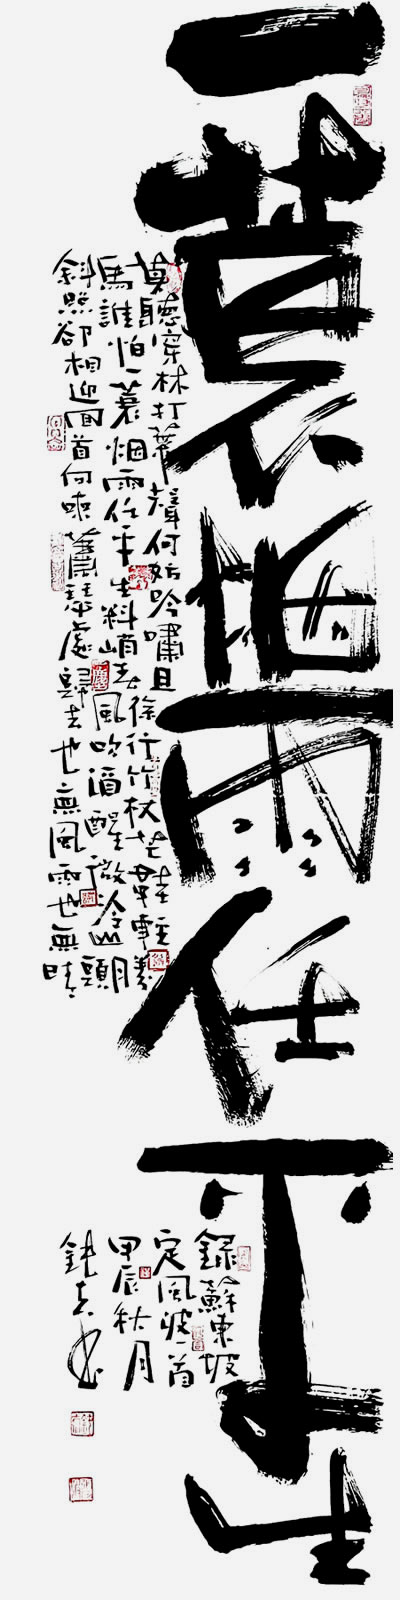 一蓑烟雨任平生
莫聽穿林打葉聲何妨吟嘯且徐行竹杖芒鞋輕勝
馬誰怕一蓑烟雨任平生料峭春風吹酒醒微冷山頭
斜照卻相迎回首向來蕭瑟處歸去也無風雨也無晴
錄蘇東坡
定風波一首
甲辰秋月